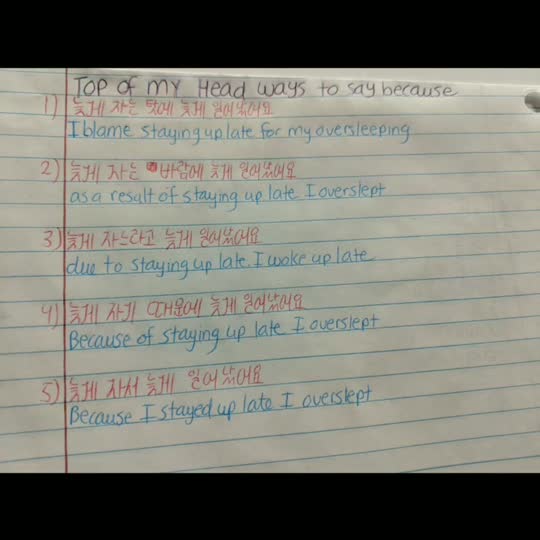 Top of my Head ways to say because
1) 늦게 자는 탓에 늦게 일어났어요
I blame staying up late for my oversleeping
2) 늦게 자는 바람에 늦게 일어났어요
as a result of staying up late I overslept
3) 늦게 자느라고 늦게 일어났어요
due to staying up late. I woke up late
4) 늦게 자기 때문에 늦게 일어났어요
Because of staying up late I overslept
5) 늦게 자서 늦게 일어났어요
Because I stayed up late I overslept